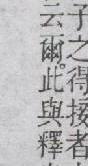 子之得接者
云爾此與釋